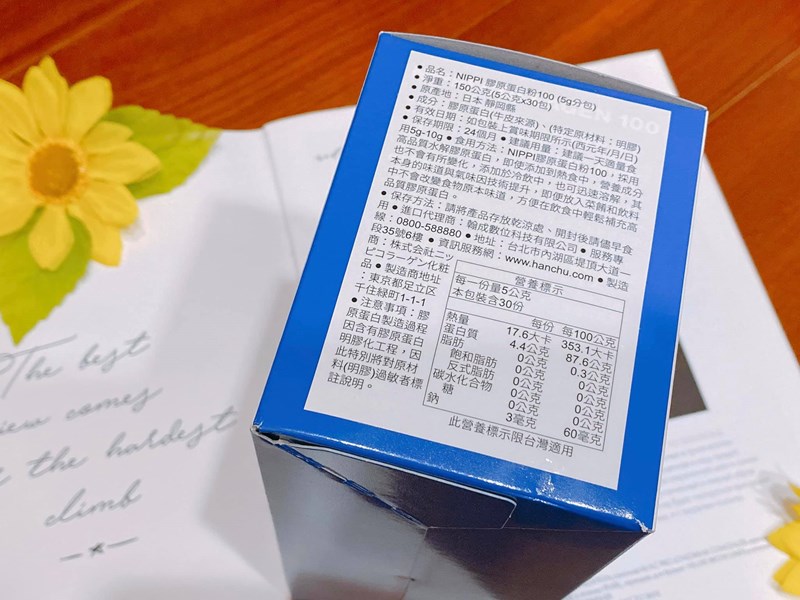 GEN 100
● 品名：NIPPI 膠原蛋白粉100 (5g分包)
● 淨重：150公克(5公克x30包)
● 原產地：日本 靜岡縣
● 成分：膠原蛋白(牛皮來源)、(特定原材料：明膠)
● 有效日期：如包裝上賞味期限所示(西元年/月/日)
● 保存期限：24個月 ● 建議用量：建議一天適量食
用5g-10g ● 食用方法：NIPPI膠原蛋白粉100，採用
高品質水解膠原蛋白，即使添加到熱食中，營養成分
也不會有所變化，添加於冷飲中，也可迅速溶解，其
本身的味道與氣味因技術提升，即便放入菜餚和飲料
中不會改變食物原本味道，方便在飲食中輕鬆補充高
品質膠原蛋白。
● 保存方法：請將產品存放乾涼處、開封後請儘早食
用 ● 進口代理商：翰成數位科技有限公司 ● 服務專
線：0800-588880 ● 地址：台北市內湖區堤頂大道一
段35號6樓 ● 資訊服務網：www.hanchu.com ● 製造
商：株式会社ニッ
ピコラーゲン化粧
品 ● 製造商地址
：東京都足立区
千住緑町1-1-1
● 注意事項：膠
原蛋白製造過程
因含有膠原蛋白
明膠化工程，因
此特別將對原材
料(明膠)過敏者標
註說明。
營養標示
每一份量5公克
本包裝含30份
每份 每100公克
熱量 17.6大卡 353.1大卡
蛋白質 4.4公克 87.6公克
脂肪 0公克 0.3公克
飽和脂肪 0公克 0公克
反式脂肪 0公克 0公克
碳水化合物 0公克 0公克
糖 0公克 0公克
鈉 3毫克 60毫克
此營養標示限台灣適用
The best
view comes
the hardest
climb